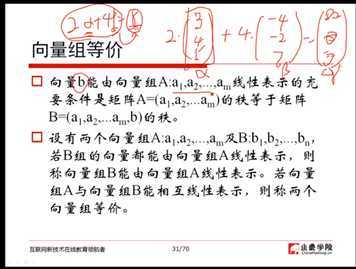 2α+4β=γ
2·(3 4 1)+4·(-4 -2 7)=
向量组等价
向量b能由向量组A:a₁,a₂,...,aₘ线性表示的充
要条件是矩阵A=(a₁,a₂,...,aₘ)的秩等于矩阵
B=(a₁,a₂,...,aₘ,b)的秩。
设有两个向量组A:a₁,a₂,...,aₘ及B:b₁,b₂,...,bₙ,
若B组的向量都能由向量组A线性表示，则
称向量组B能由向量组A线性表示。若向量
组A与向量组B能相互线性表示，则称两个
向量组等价。
互联网新技术在线教育领航者
31/70